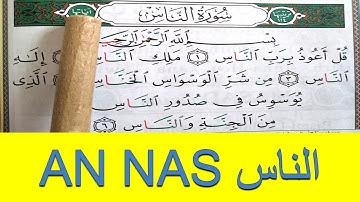 سُورَةُ النَّاسِ
بِسْمِ اللَّهِ الرَّحْمَٰنِ الرَّحِيمِ
قُلْ أَعُوذُ بِرَبِّ النَّاسِ ١ مَلِكِ النَّاسِ ٢ إِلَٰهِ
النَّاسِ ٣ مِن شَرِّ الْوَسْوَاسِ الْخَنَّاسِ ٤ الَّذِي
يُوَسْوِسُ فِي صُدُورِ النَّاسِ ٥
مِنَ الْجِنَّةِ وَالنَّاسِ ٦
AN NAS الناس